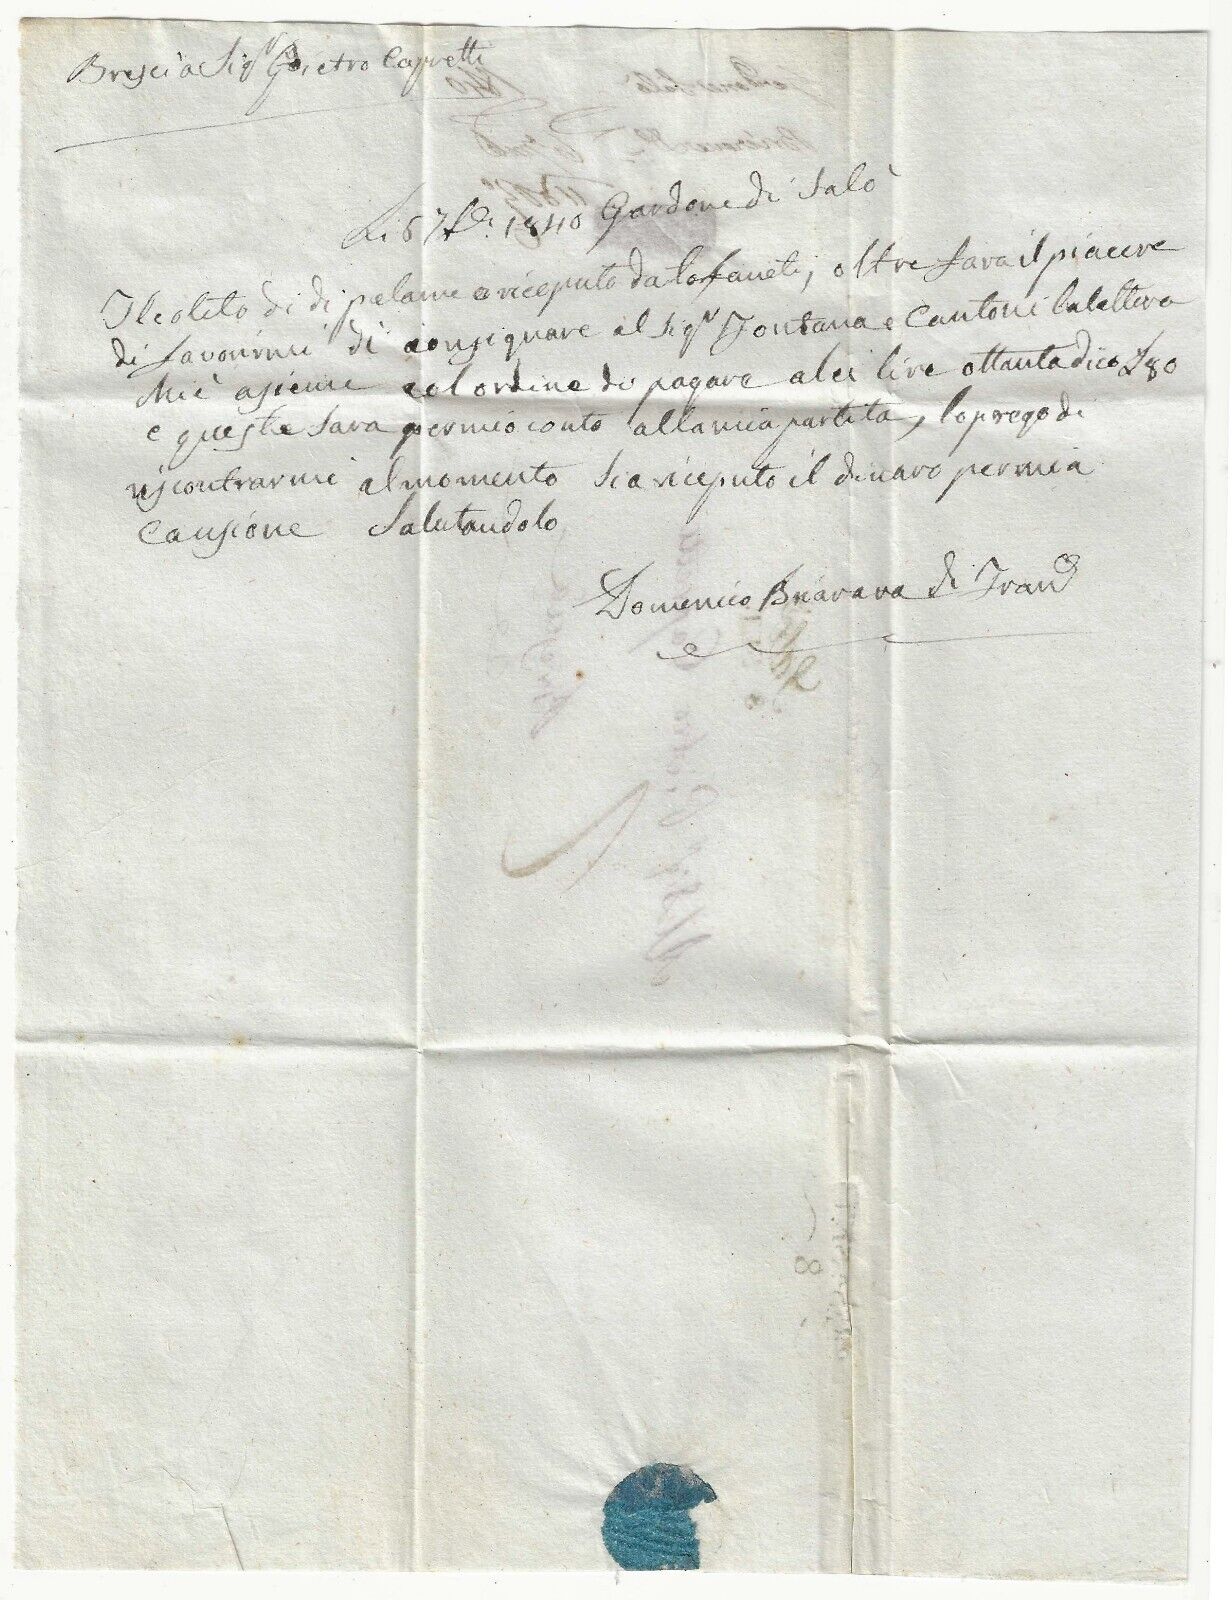 Brescia Sigr Pietro Capretti
Li 6 7bre 1840 Gardone di Salò
Il colito di di pelame o riceputo da to faneti, oltre fara il piacere
di favorirmi di consignare al Sigr Fontana e Cantoni la lettera
Mie asieme col ordine di pagare a lei lire ottanta dico £80
e queste sara per mio conto alla mia partita, lo prego di
riscontrarmi al momento sia riceputo il dinaro per mia
Causione Salutandolo
Domenico Bravara di Fran
8